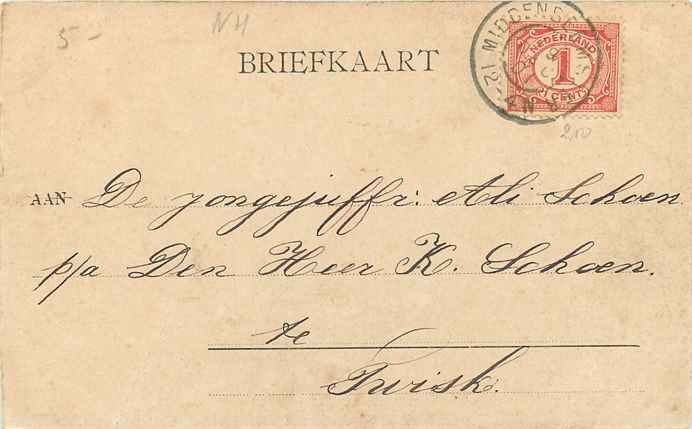 5-
NH
BRIEFKAART
NEDERLAND
1
CENT
2,10
AAN De jongejuffr: Ali Schoen
p/a Den Heer K. Schoen.
te
Twisk.